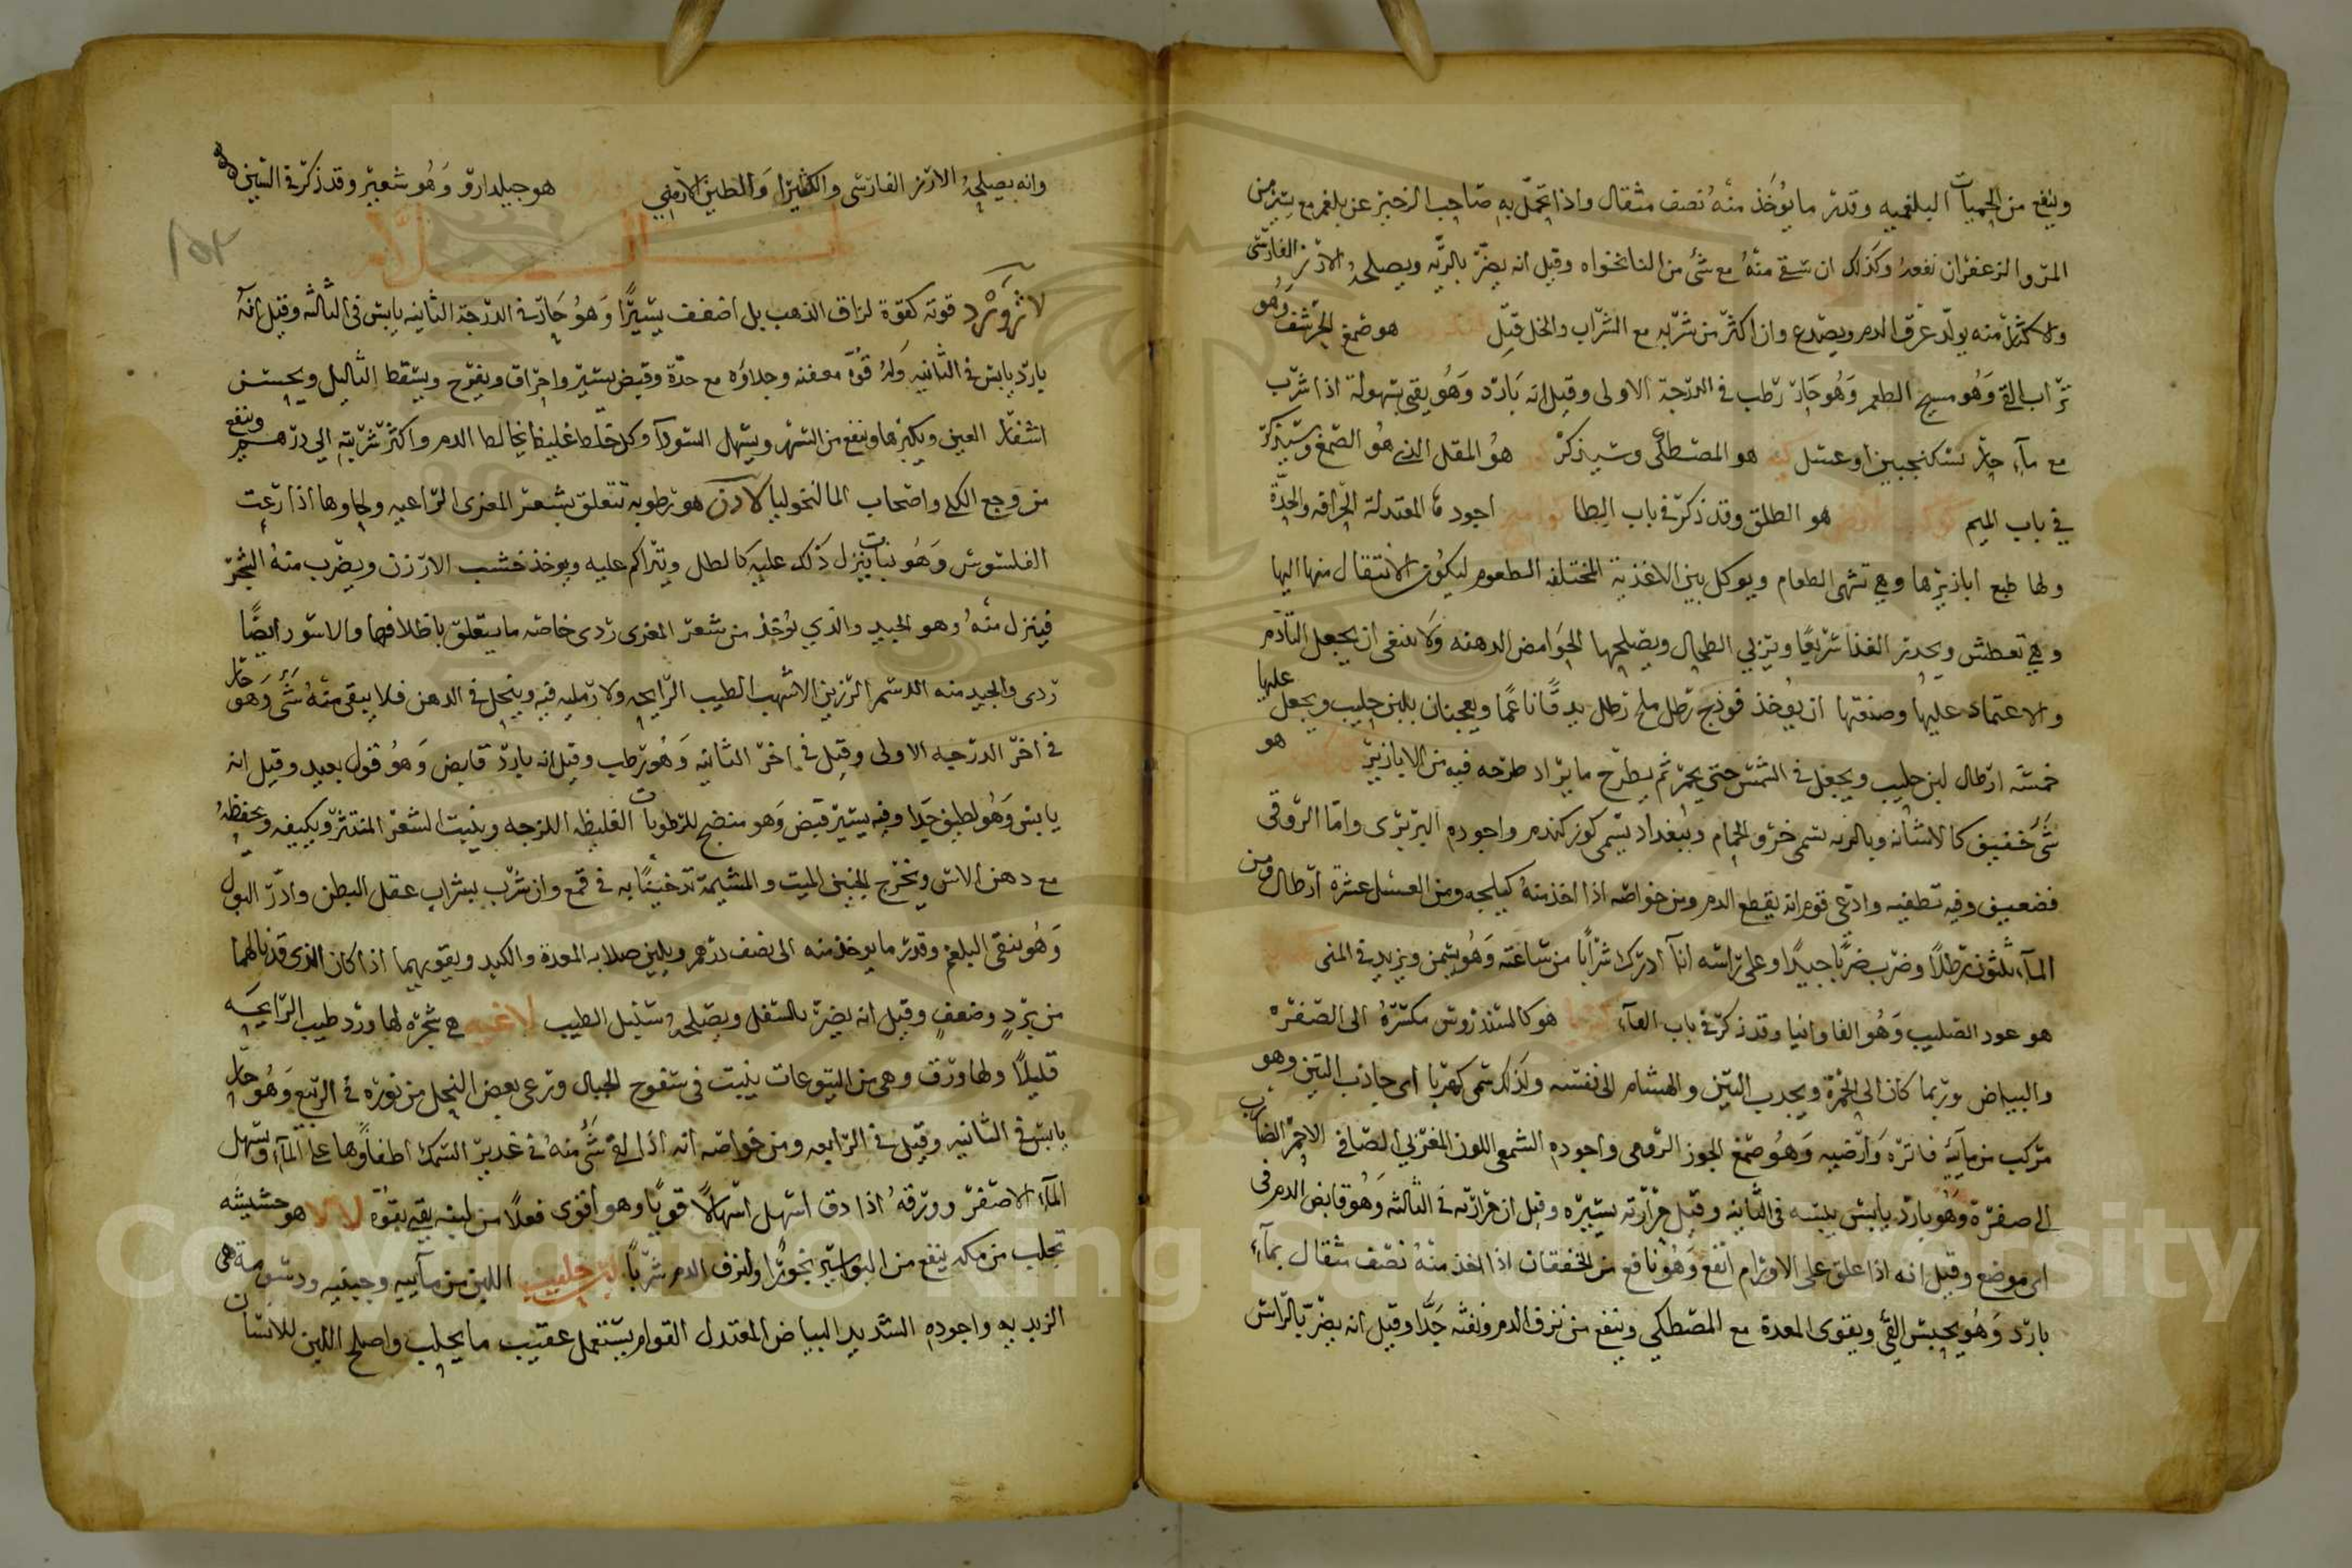 وينفع من الحميات البلغميه وقدر ما يؤخذ منه نصف مثقال واذا تحمل به صاحب الزحير عن بلغم مع يسير من
المر والزعفران نفعه وكذلك ان سقي منه مع شئ من النانخواه وقيل انه يضر بالريه ويصلحه الارز الفارسى
والاكثار منه يولد عرق الدم ويصدع وان اكثر من شربه مع الشراب والخل قتل هو صمغ الحرشف وهو
تراب القئ وهو مسيح الطعم وهو حار رطب في الدرجة الاولى وقيل انه بارد وهو يقى بسهولة اذا شرب
مع مآء حار بسكنجبين او عسل كيه هو المصطكى وسيذكر كور هو المقل الذي هو الصمغ وسيذكر
في باب الميم كوكب الارض هو الطلق وقد ذكر في باب الطا كواميخ اجودها المعتدلة الحرافه والحدة
ولها طبع ابازيرها وهي تشهى الطعام ويوكل بين الاغذية المختلفه الطعوم ليكون الانتقال منها اليها
وهي تعطش ويحدر الغذا سريعا وتزبي الطحال ويصلحها الحوامض الدهنه ولا ينبغى ان يجعل التأدم
والاعتماد عليها وصنعتها ان يؤخذ فوذنج رطل ملح رطل يدق ناعما ويعجنان بلبن حليب ويجعل عليها
خمسة ارطال لبن حليب ويجعل في الشمس حتى يحمر ثم يطرح ما يراد طرحه فيه من الابازير هو
شئ خفيف كالاشنانه وبالعربه تسمى خرؤ الحمام وببغداد يسمى كوز كندم واجوده البربرى واما الروقى
فضعيف وفيه تطفيه وادعى قوم انه يقطع الدم ومن خواصه اذا اخذ منه كيلجه ومن العسل عشرة ارطال ومن
المآء ثلثون رطلا وضرب ضربا جيدا وعلى راسه انآ ادرك شرابا من ساعته وهو يسمن ويزيد في المنى
هو عود الصليب وهو الفاوانيا وقد ذكر في باب الفآء كهربا هو كالسندروس مكسره الى الصفره
والبياض وربما كان الى الحمرة ويجدب التبن والهشام الى نفسه ولذلك سمى كهربا اى جاذب التبن وهو
مركب من مآئيه فاتره وارضيه وهو صمغ الجوز الرومى واجوده الشمعى اللون المغربي الصافى الاحمر الضارب
الى صفرة وهو بارد يابس يبسه فى الثانيه وقيل حرارته يسيره وقيل ان حرارته في الثالثه وهو قابض الدم فى
اى موضع وقيل انه اذا علق على الاورام انفع وهو نافع من الخفقان اذا اخذ منه نصف مثقال بمآء
بارد وهو يحبس القئ ويقوى المعدة مع المصطكي وينفع من نزف الدم ونفثه جدا وقيل انه يضر بالراس
وانه يصلحه الارز الفارسى والكثيرا والطين الارمني هو جبلدارو وهو شعير وقد ذكر في الشين
بـــاب الـــلام
لازورد قوته كقوة لزاق الذهب بل اضعف يسيرا وهو حار في الدرجة الثانيه يابس في الثالثه وقيل انه
بارد يابس في الثانيه وله قوة معفنه وجلاؤه مع حدة وقبض يسير واحراق ويقرح ويسقط الثاليل ويحسن
اشفار العين ويكبرها وينفع من السهر ويسهل السودآ وكل خلط غليظ يخالط الدم واكثر شربته الي درهم وينفع
من وجع الكلى واصحاب المالنخوليا لاذن هو رطوبه تتعلق بشعر المعزى الراعيه ولحاوها اذا رعت
القلسوس وهو نبات ينزل ذلك عليه كالطل ويتراكم عليه ويوخذ خشب الارزن ويضرب منه الشجر
فينزل منه وهو الجيد والذي يؤخذ من شعر المعزى ردى خاصه ما يتعلق باظلافها والاسود ايضا
ردى والجيد منه الدسم الرزين الاشهب الطيب الرايحه ولا رمليه فيه وينحل في الدهن فلا يبقى منه شئ وهو حار
في اخر الدرجه الاولى وقيل في اخر الثانيه وهو رطب وقيل انه بارد قابض وهو قول بعيد وقيل انه
يابس وهو لطيف جدا وفيه يسير قبض وهو منضج للرطوبات الغليظه اللزجه وينبت الشعر المنتثر ويكيفه ويحفظه
مع دهن الاس ويخرج الجنين الميت والمشيمة تدخينا به في قمع وان شرب بشراب عقل البطن وادر البول
وهو ينقى البلغم وقدر ما يوخذ منه الى نصف درهم ويلين صلابه المعدة والكبد ويقويهما اذا كان الذى قد نالهما
من برد وضعف وقيل انه يضر بالسفل ويصلحه سنبل الطيب لاغيه هي شجره لها ورد طيب الرايحه
قليلا ولها ورق وهى من اليتوعات ينبت في سفوح الجبال وترعى بعض النحل من نوره في الربيع وهو حار
يابس في الثانيه وقيل في الرابعه ومن خواصه انه اذا القي شئ منه في غدير السمك اطفاوها على المآء ويسهل
المآء الاصفر وورقه اذا دق اسهل اسهالا قويا وهو اقوى فعلا من لبنه يقي بقوة لالا هو حشيشه
تجلب من مكه ينفع من البواسير بخورا ولنزف الدم شربا لبن حليب اللبن من مآييه وجبنيه ودسومة هى
الزبديه واجوده الشديد البياض المعتدل القوام يستعمل عقيب ما يحلب واصلح اللبن للانسان
Copyright © King Saud University